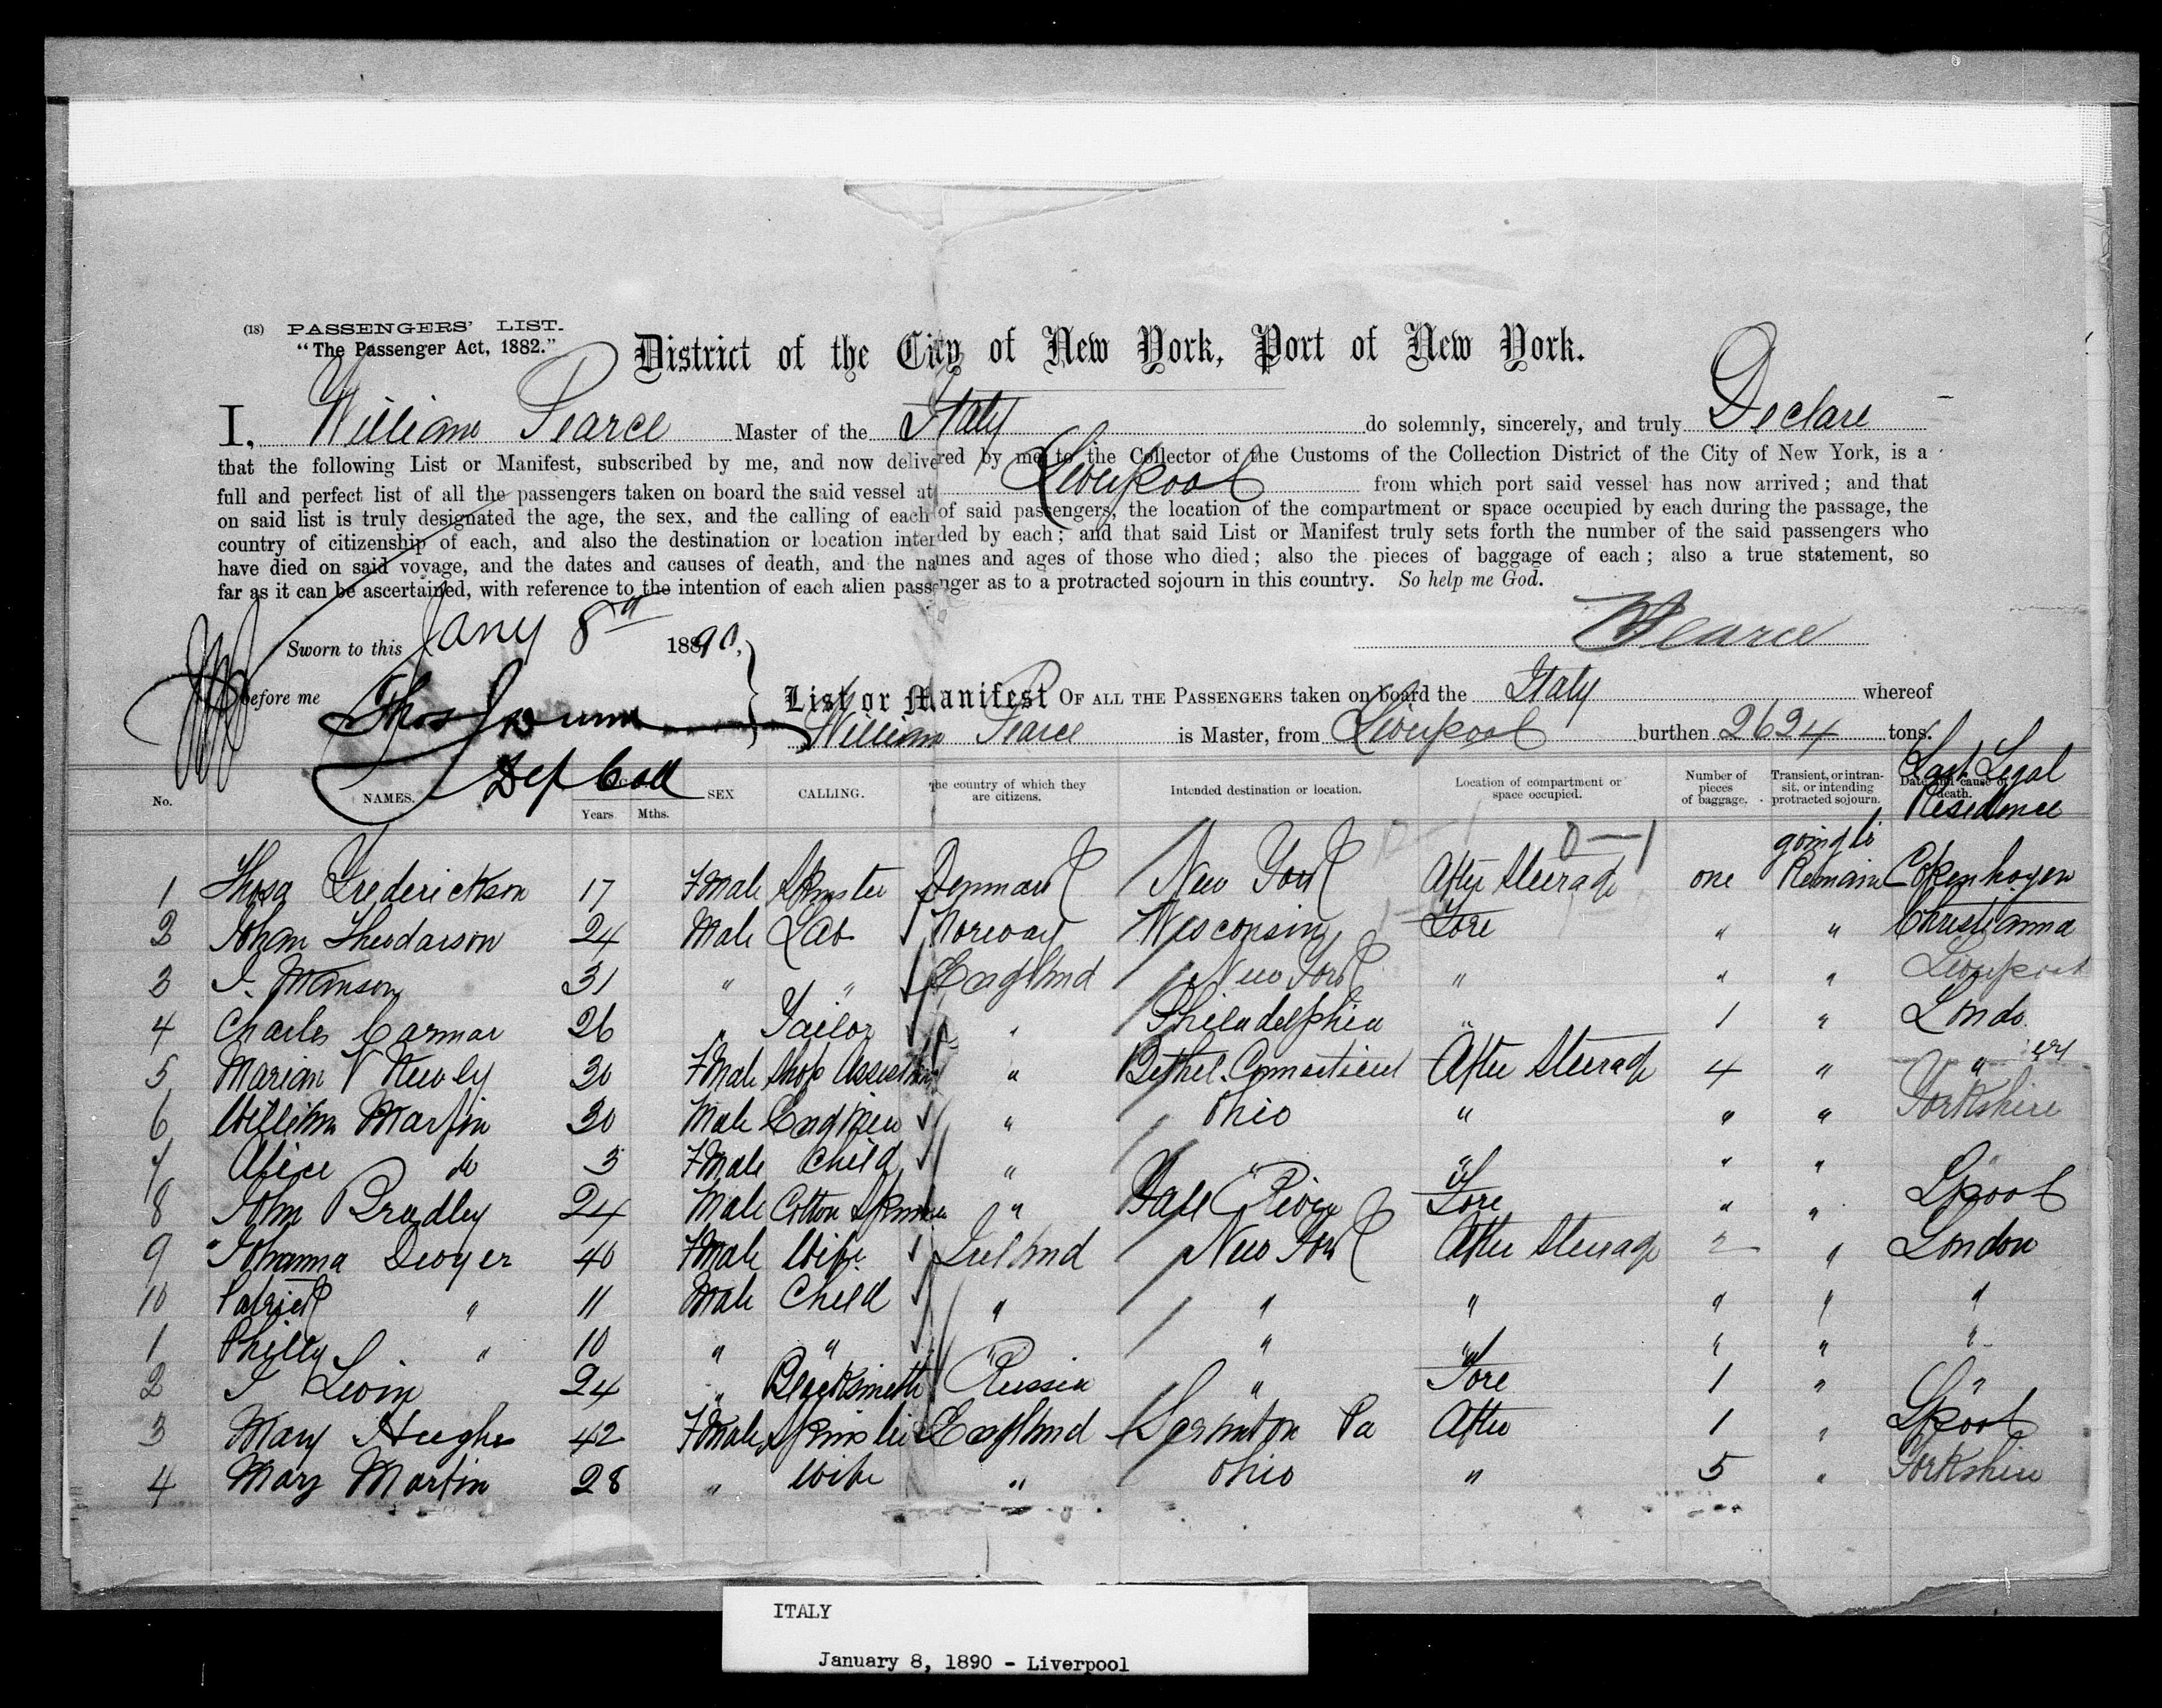 (18) PASSENGERS' LIST.
"The Passenger Act, 1882."
District of the City of New York, Port of New York.
I, William Pearce Master of the Italy do solemnly, sincerely, and truly Declare
that the following List or Manifest, subscribed by me, and now delivered by me to the Collector of the Customs of the Collection District of the City of New York, is a
full and perfect list of all the passengers taken on board the said vessel at Liverpool from which port said vessel has now arrived; and that
on said list is truly designated the age, the sex, and the calling of each of said passengers, the location of the compartment or space occupied by each during the passage, the
country of citizenship of each, and also the destination or location intended by each; and that said List or Manifest truly sets forth the number of the said passengers who
have died on said voyage, and the dates and causes of death, and the names and ages of those who died; also the pieces of baggage of each; also a true statement, so
far as it can be ascertained, with reference to the intention of each alien passenger as to a protracted sojourn in this country. So help me God.
Sworn to this Jany 8th 1890,
W Pearce
before me Thos
Dep Coll
List or Manifest OF ALL THE PASSENGERS taken on board the Italy whereof
William Pearce is Master, from Liverpool burthen 2624 tons.
No. NAMES. Years Mths. SEX CALLING. The country of which they are citizens. Intended destination or location. Location of compartment or space occupied. Number of pieces of baggage. Transient, or intransit, or intending protracted sojourn. Date and cause of death. Last Legal Residence
1 Frederickson 17 Fmale Spinster Denmark New York After Steerage one going to Remain Copenhagen
2 Johan Theodarson 24 Male Lab Norway Wisconsin Fore " " Christianna
3 I. Manson 31 " " England New York " " " Liverpool
4 Charles Carmar 26 " Tailor " Philadelphia " 1 " Londo
5 Marian V Newly 30 Fmale Shop Assistant " Bethel. Connecticut After Steerage 4 " "
6 William Martin 30 Male Engineer " Ohio " " " Yorkshire
7 Alice do 3 Fmale Child " " " " "
8 John Bradley 24 Male Cotton Spinner " Fall River Fore " " Lpool
9 Johanna Dwyer 40 Fmale Wife Ireland New York After Steerage 2 " London
10 Patrick " 11 Male Child " " " " " "
1 Philly " 10 " " " " " " " "
2 I Levin 24 " Blacksmith Russia " Fore 1 " "
3 Mary Hughes 42 Fmale Spinster England Scranton Pa After 1 " Lpool
4 Mary Martin 28 " Wife " Ohio " 5 " Yorkshire
ITALY
January 8, 1890 - Liverpool